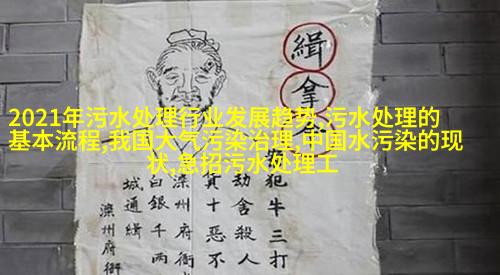 2021年污水处理行业发展趋势,污水处理的
基本流程,我国大气污染治理,中国水污染的现
状,急招污水处理工
緝拿
犯牛三打
劫舍殺人
十惡不
滦州府衙
白銀千兩
城通緝
滦州府衙